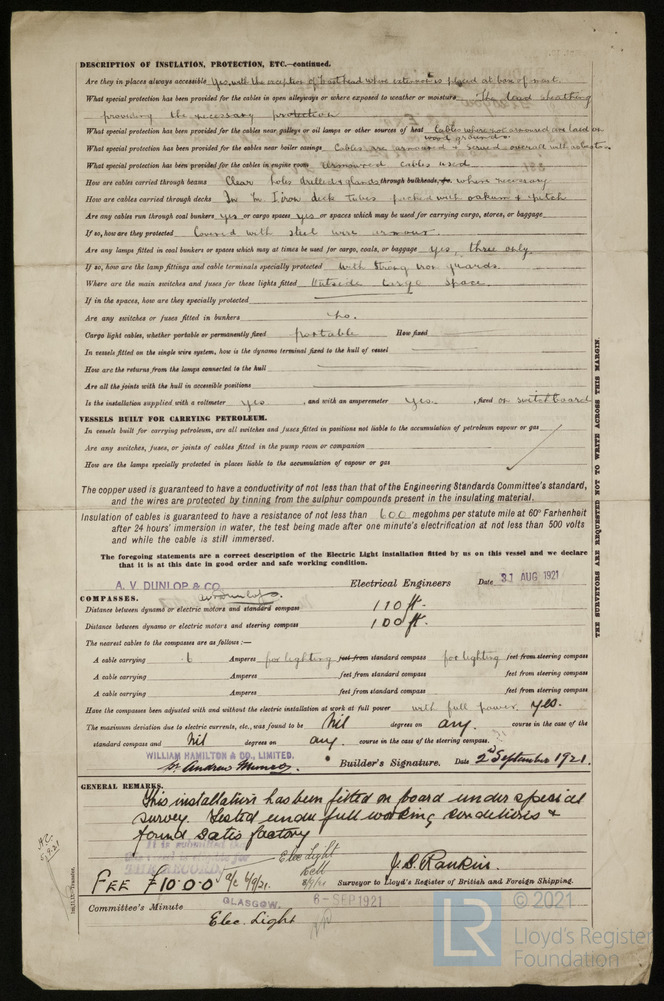 DESCRIPTION OF INSULATION, PROTECTION, ETC.—continued.
Are they in places always accessible yes, with the exception of masthead where exterior is placed at box of mast.
What special protection has been provided for the cables in open alleyways or where exposed to weather or moisture The lead sheathing
providing the necessary protection
What special protection has been provided for the cables near galleys or oil lamps or other sources of heat Cables where not armoured are laid on
wood grounds.
What special protection has been provided for the cables near boiler casings Cables are armoured & served overall with asbestos
What special protection has been provided for the cables in engine room Armoured cables used
How are cables carried through beams Clear holes drilled & glands through bulkheads, &c. where necessary
How are cables carried through decks In iron deck tubes packed with oakum & pitch
Are any cables run through coal bunkers yes or cargo spaces yes or spaces which may be used for carrying cargo, stores, or baggage
If so, how are they protected Covered with steel wire armour.
Are any lamps fitted in coal bunkers or spaces which may at times be used for cargo, coals, or baggage yes, three only.
If so, how are the lamp fittings and cable terminals specially protected With strong iron guards.
Where are the main switches and fuses for these lights fitted Outside cargo space.
If in the spaces, how are they specially protected
Are any switches or fuses fitted in bunkers no.
Cargo light cables, whether portable or permanently fixed portable How fixed
In vessels fitted on the single wire system, how is the dynamo terminal fixed to the hull of vessel
How are the returns from the lamps connected to the hull
Are all the joints with the hull in accessible positions
Is the installation supplied with a voltmeter yes , and with an amperemeter yes. , fixed on switchboard
VESSELS BUILT FOR CARRYING PETROLEUM.
In vessels built for carrying petroleum, are all switches and fuses fitted in positions not liable to the accumulation of petroleum vapour or gas
Are any switches, fuses, or joints of cables fitted in the pump room or companion
How are the lamps specially protected in places liable to the accumulation of vapour or gas
The copper used is guaranteed to have a conductivity of not less than that of the Engineering Standards Committee's standard,
and the wires are protected by tinning from the sulphur compounds present in the insulating material.
Insulation of cables is guaranteed to have a resistance of not less than 600 megohms per statute mile at 60° Farhenheit
after 24 hours' immersion in water, the test being made after one minute's electrification at not less than 500 volts
and while the cable is still immersed.
The foregoing statements are a correct description of the Electric Light installation fitted by us on this vessel and we declare
that it is at this date in good order and safe working condition.
A. V. DUNLOP & CO. Electrical Engineers Date 31 AUG 1921
COMPASSES.
Distance between dynamo or electric motors and standard compass 110 ft.
Distance between dynamo or electric motors and steering compass 100 ft.
The nearest cables to the compasses are as follows:—
A cable carrying Amperes for lighting feet from standard compass for lighting feet from steering compass
A cable carrying Amperes feet from standard compass feet from steering compass
A cable carrying Amperes feet from standard compass feet from steering compass
Have the compasses been adjusted with and without the electric installation at work at full power with full power yes.
The maximum deviation due to electric currents, etc., was found to be Nil degrees on any. course in the case of the
standard compass and Nil degrees on any. course in the case of the steering compass.
WILLIAM HAMILTON & CO., LIMITED.
Builder's Signature. Date 2nd September 1921.
GENERAL REMARKS.
This installation has been fitted on board under special
survey. Tested under full working conditions &
found satisfactory
It is submitted
THE RECORD
Elec Light
FEE £10.0.0 6/9/21. J. S. Rankin.
Surveyor to Lloyd's Register of British and Foreign Shipping.
Committee's Minute GLASGOW. 6-SEP 1921
Elec. Light
THE SURVEYORS ARE REQUESTED NOT TO WRITE ACROSS THIS MARGIN.
5.9.21
© 2021
LR
Lloyd's Register
Foundation